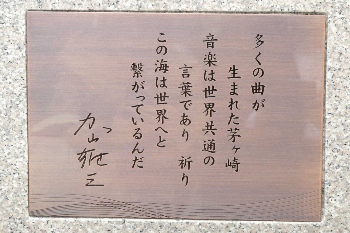 多くの曲が
生まれた茅ヶ崎
音楽は世界共通の
言葉であり 祈り
この海は世界へと
繋がっているんだ
加山雄三